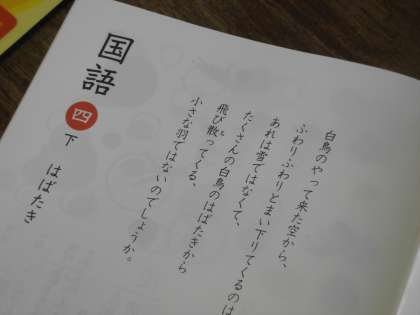 国語
四
下
はばたき
白鳥のやって来た空から、
ふわりふわりとまい下りてくるのは
あれは雪ではなくて、
たくさんの白鳥のはばたきから
飛び散ってくる、
小さな羽ではないのでしょうか。